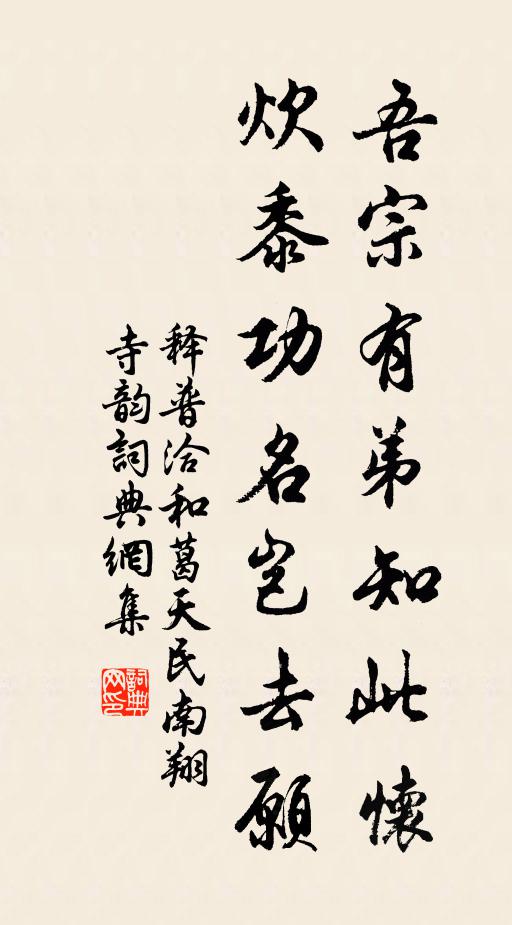 吾宗有弟知此懷
炊黍功名岂去願
释普洽和葛天民南翔
寺韵詞典網集
詞典网印